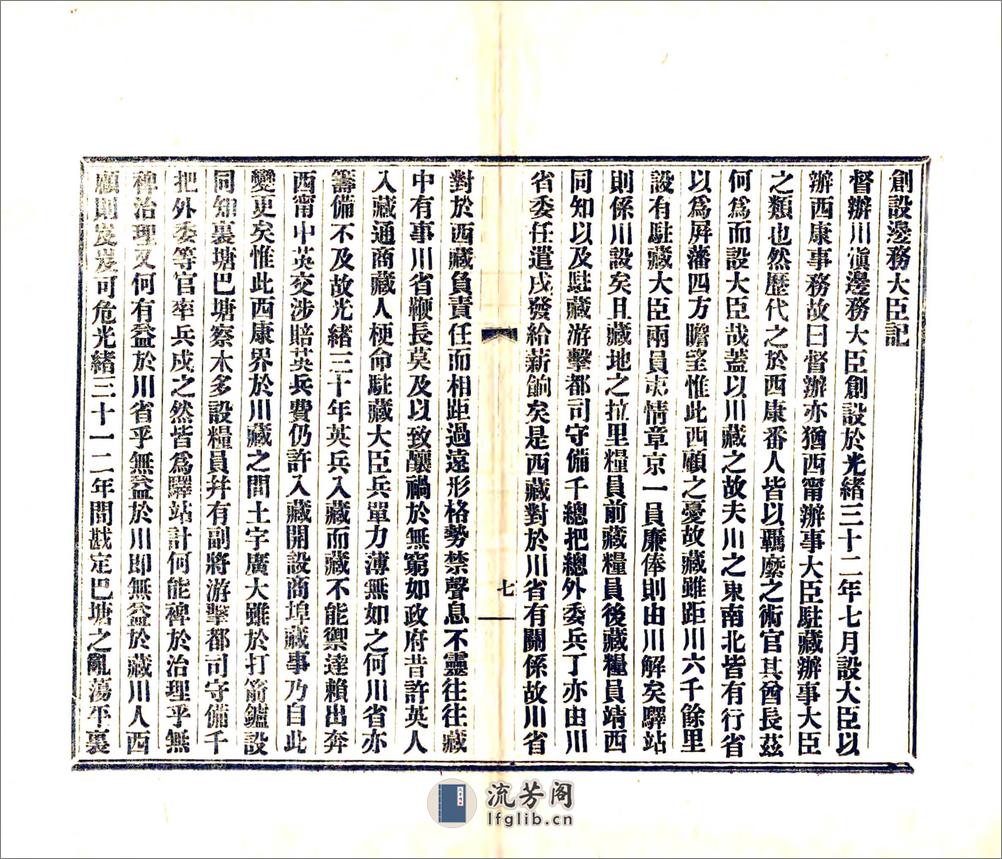 創設邊務大臣記
督辦川滇邊務大臣創設於光緒三十二年七月設大臣以
辦西康事務故曰督辦亦猶西甯辦事大臣駐藏辦事大臣
之類也然歷代之於西康番人皆以羈縻之術官其酋長茲
何爲而設大臣哉蓋以川藏之故夫川之東南北皆有行省
以爲屏藩四方瞻望惟此西顧之憂故藏雖距川六千餘里
設有駐藏大臣兩員夷情章京一員廉俸則由川解矣驛站
則係川設矣且藏地之拉里糧員前藏糧員後藏糧員靖西
同知以及駐藏游擊都司守備千總把總外委兵丁亦由川
省委任遣戌發給薪餉矣是西藏對於川省有關係故川省
對於西藏負責任而相距過遠形格勢禁聲息不靈往往藏
中有事川省鞭長莫及以致釀禍於無窮如政府昔許英人
入藏通商藏人梗命駐藏大臣兵單力薄無如之何川省亦
籌備不及故光緒三十年英兵入藏而藏不能禦達賴出奔
西甯中英交涉賠英兵費仍許入藏開設商埠藏事乃自此
變更矣惟此西康界於川藏之間土宇廣大雖於打箭鑪設
同知裏塘巴塘察木多設糧員幷有副將游擊都司守備千
把外委等官率兵戍之然皆爲驛站計何能裨於治理乎無
裨治理又何有益於川省乎無益於川卽無益於藏川人西
顧則岌岌可危光緒三十一二年間戡定巴塘之亂蕩平裏
七
流芳阁
lfglib.cn